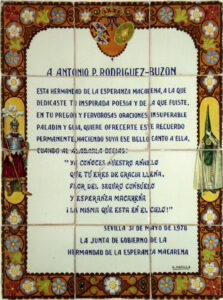 A ANTONIO P. RODRIGUEZ-BUZON
ESTA HERMANDAD DE LA ESPERANZA MACARENA, A LA QUE
DEDICASTE TU INSPIRADA POESIA Y DE LA QUE FUISTE,
EN TU PREGON Y FERVOROSAS ORACIONES INSUPERABLE
PALADIN Y GUIA, QUIERE OFRECERTE ESTE RECUERDO
PERMANENTE, HACIENDO SUYA ESE BELLO CANTO A ELLA,
CUANDO AL ALABARLA DECIAS:
"YA CONOCES NUESTRO ANHELO
QUE TU ERES DE GRACIA LLENA,
FLOR DEL SEGURO CONSUELO
Y ESPERANZA MACARENA
¡ LA MISMA QUE ESTA EN EL CIELO!"
SEVILLA 31 DE MAYO DE 1978
LA JUNTA DE GOBIERNO DE LA
HERMANDAD DE LA ESPERANZA MACARENA